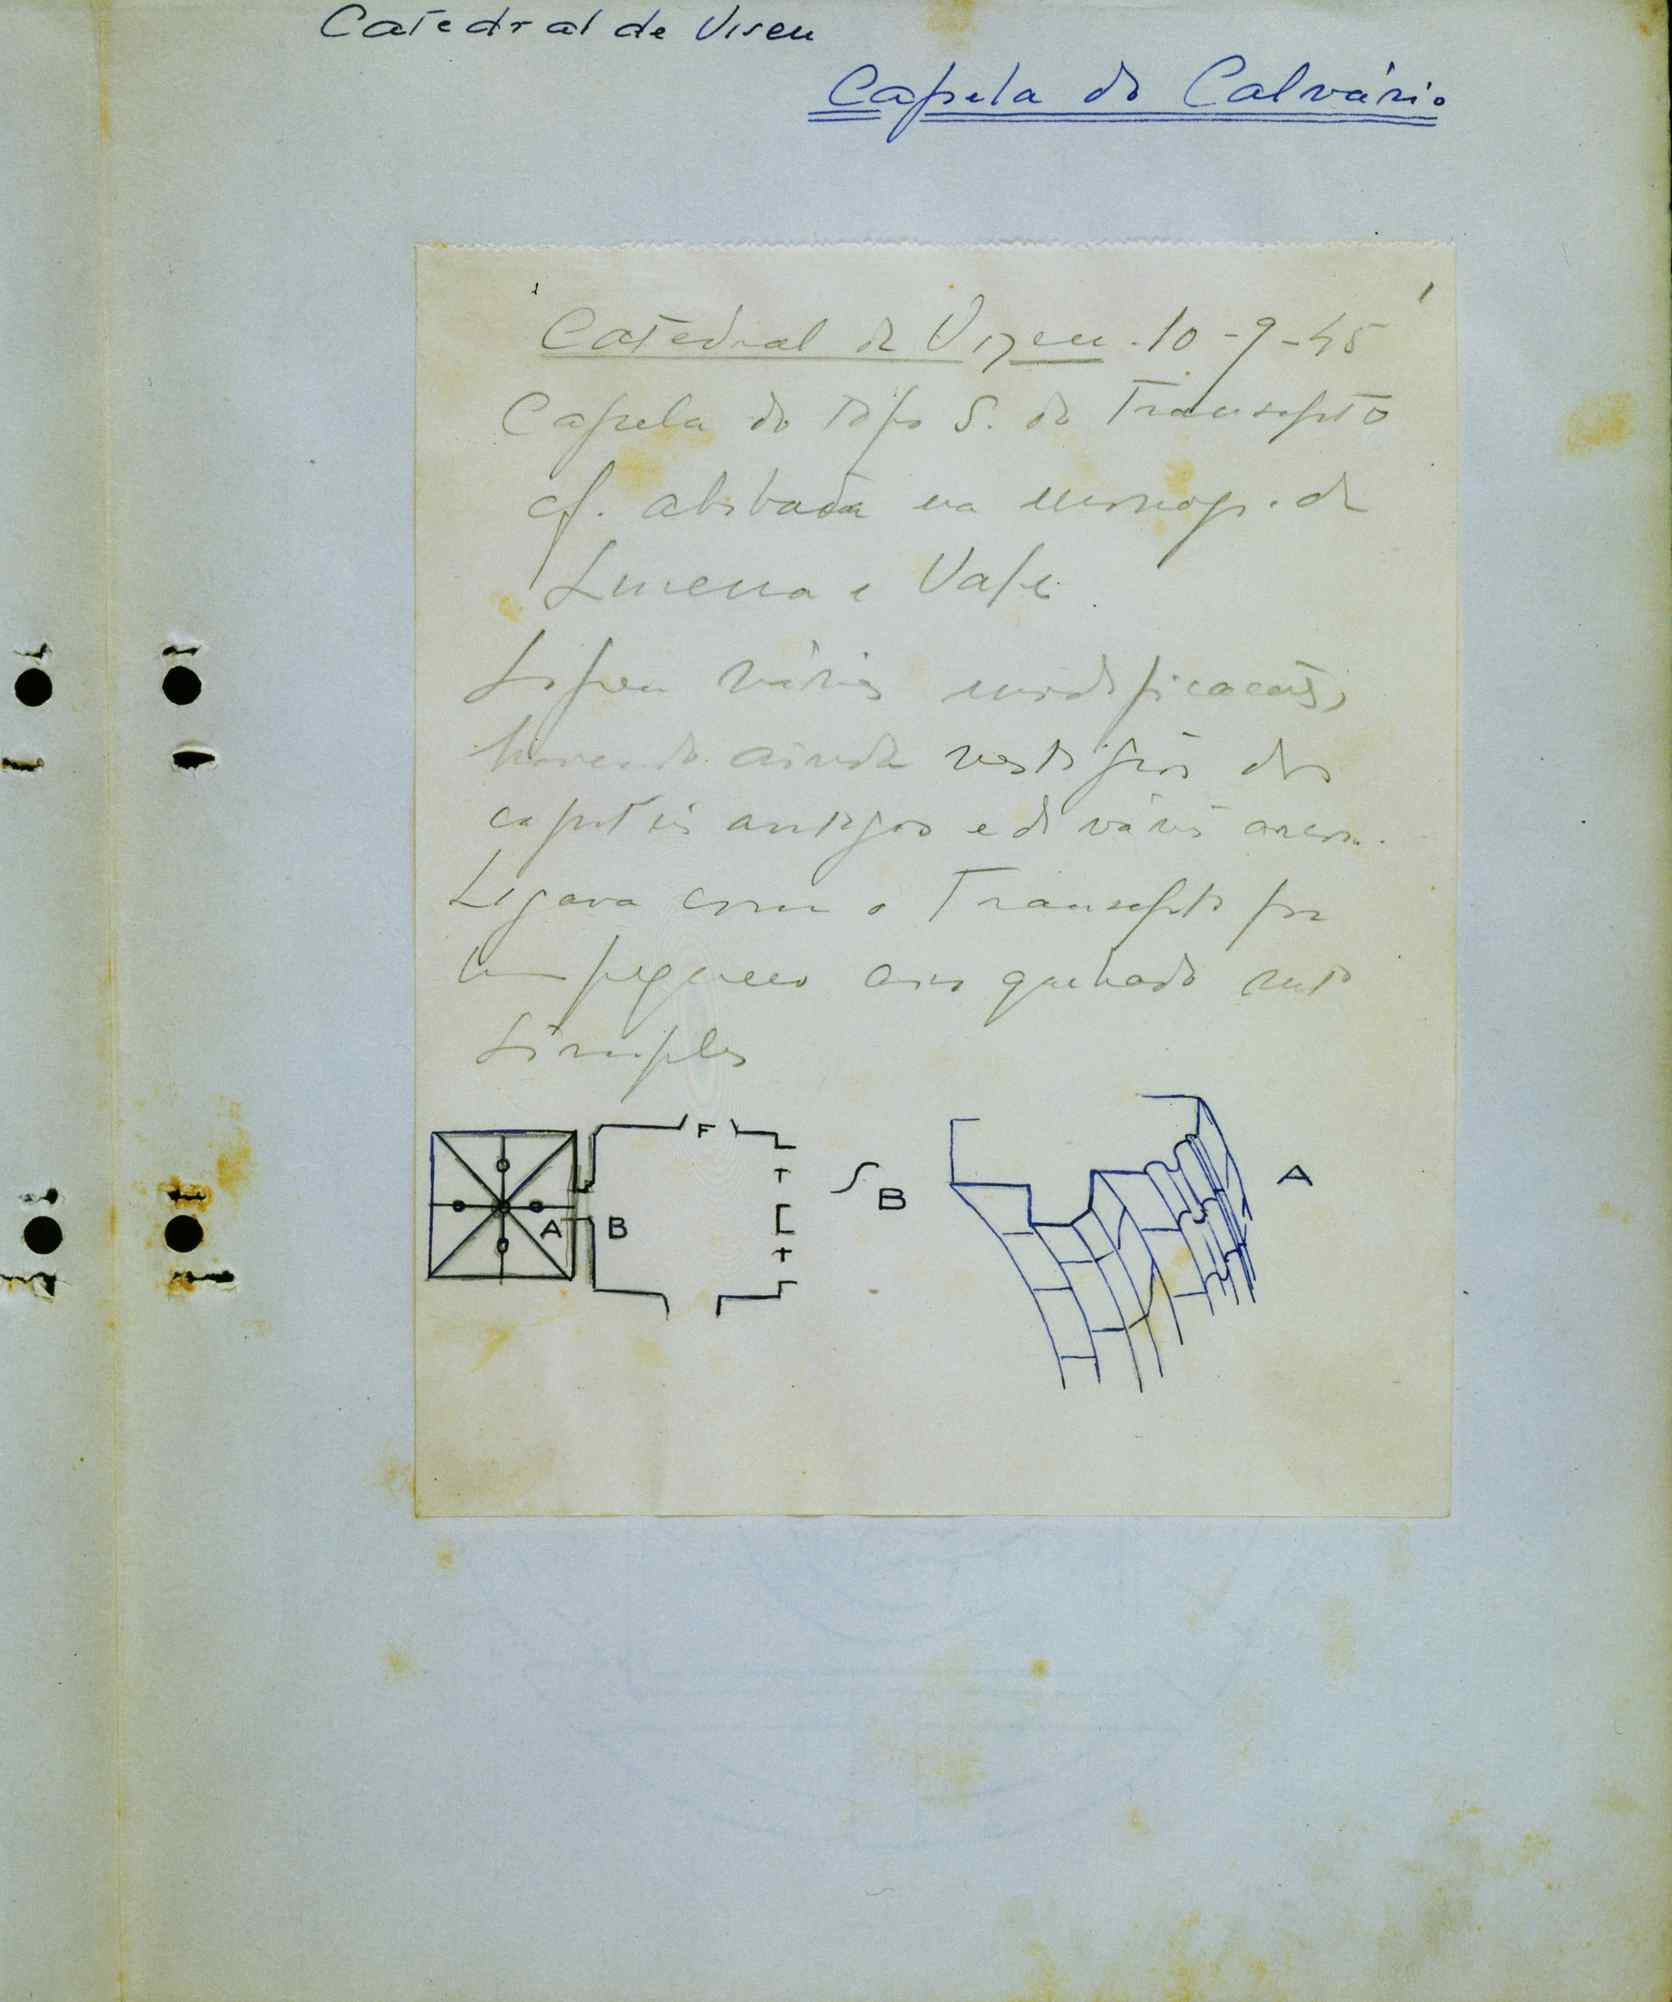 Catedral de Viseu
Capela do Calvário
Catedral de Vizeu. 10-9-45
Capela do topo S. do Transepto
cf. abobada na monogr. de
Lucena e Vale
Sofreu várias modificacões,
havendo ainda vestigios dos
capiteis antigos e de vários arcos.
Ligava com o Transepto por
um pequeno arco quebrado muito
simples
F
A B
S
B
A